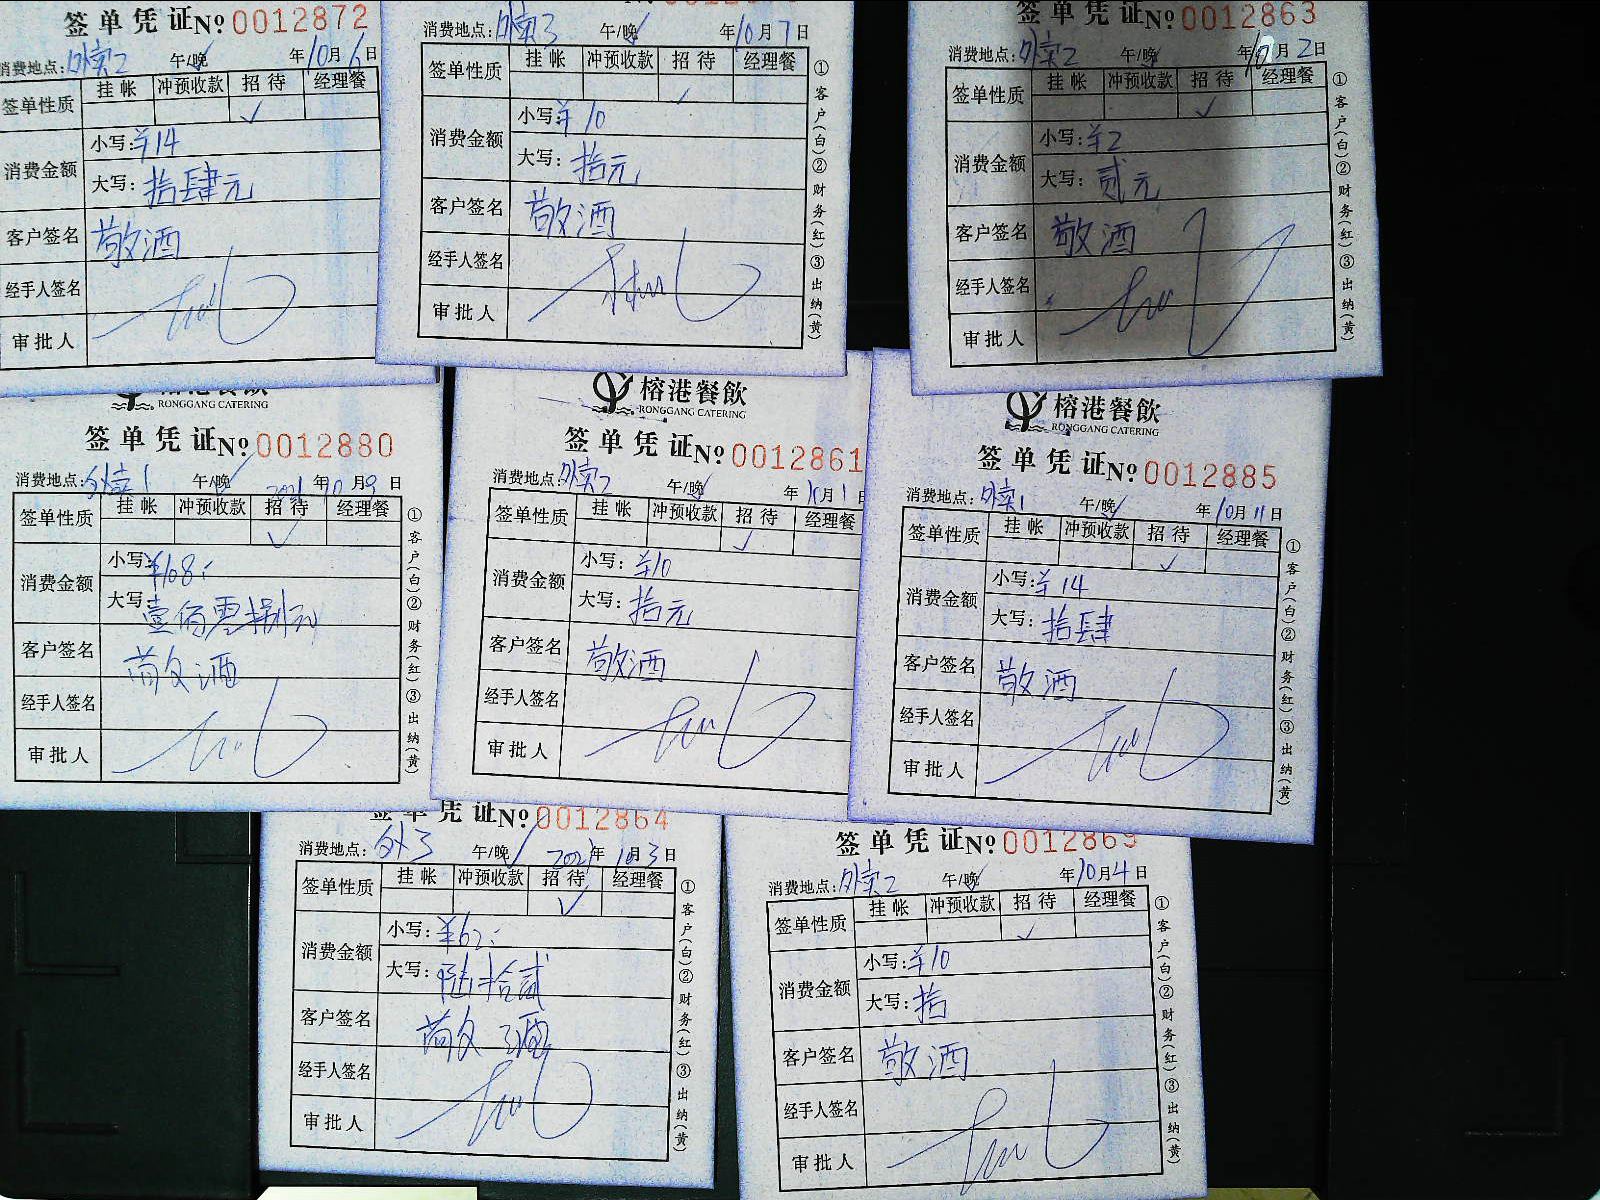 签单凭证 No 0012872
消费地点: 外卖2 午/晚 年10月6日
签单性质 挂帐 冲预收款 招待 经理餐
✓
消费金额 小写: ¥14
大写: 拾肆元
客户签名 敬酒
经手人签名
审批人
消费地点: 外卖3 午/晚 年10月7日
签单性质 挂帐 冲预收款 招待 经理餐
✓
消费金额 小写: ¥10
大写: 拾元
客户签名 敬酒
经手人签名
审批人
①客户(白)②财务(红)③出纳(黄)
签单凭证 No 0012863
消费地点: 外卖2 午/晚 年10月2日
签单性质 挂帐 冲预收款 招待 经理餐
✓
消费金额 小写: ¥2
大写: 贰元
客户签名 敬酒
经手人签名
审批人
①客户(白)②财务(红)③出纳(黄)
RONGGANG CATERING
签单凭证 No 0012880
消费地点: 外卖1 午/晚 2021年10月9日
签单性质 挂帐 冲预收款 招待 经理餐
✓
消费金额 小写: ¥108.-
大写: 壹佰零捌元
客户签名 敬酒
经手人签名
审批人
①客户(白)②财务(红)③出纳(黄)
榕港餐飲
RONGGANG CATERING
签单凭证 No 0012861
消费地点: 外卖2 午/晚 年10月1日
签单性质 挂帐 冲预收款 招待 经理餐
✓
消费金额 小写: ¥10
大写: 拾元
客户签名 敬酒
经手人签名
审批人
榕港餐飲
RONGGANG CATERING
签单凭证 No 0012885
消费地点: 外卖1 午/晚 年10月11日
签单性质 挂帐 冲预收款 招待 经理餐
✓
消费金额 小写: ¥14
大写: 拾肆
客户签名 敬酒
经手人签名
审批人
①客户(白)②财务(红)③出纳(黄)
签单凭证 No 0012864
消费地点: 外3 午/晚 2021年10月3日
签单性质 挂帐 冲预收款 招待 经理餐
✓
消费金额 小写: ¥62.-
大写: 陆拾贰
客户签名 敬酒
经手人签名
审批人
①客户(白)②财务(红)③出纳(黄)
签单凭证 No 0012869
消费地点: 外卖2 午/晚 年10月4日
签单性质 挂帐 冲预收款 招待 经理餐
✓
消费金额 小写: ¥10
大写: 拾
客户签名 敬酒
经手人签名
审批人
①客户(白)②财务(红)③出纳(黄)